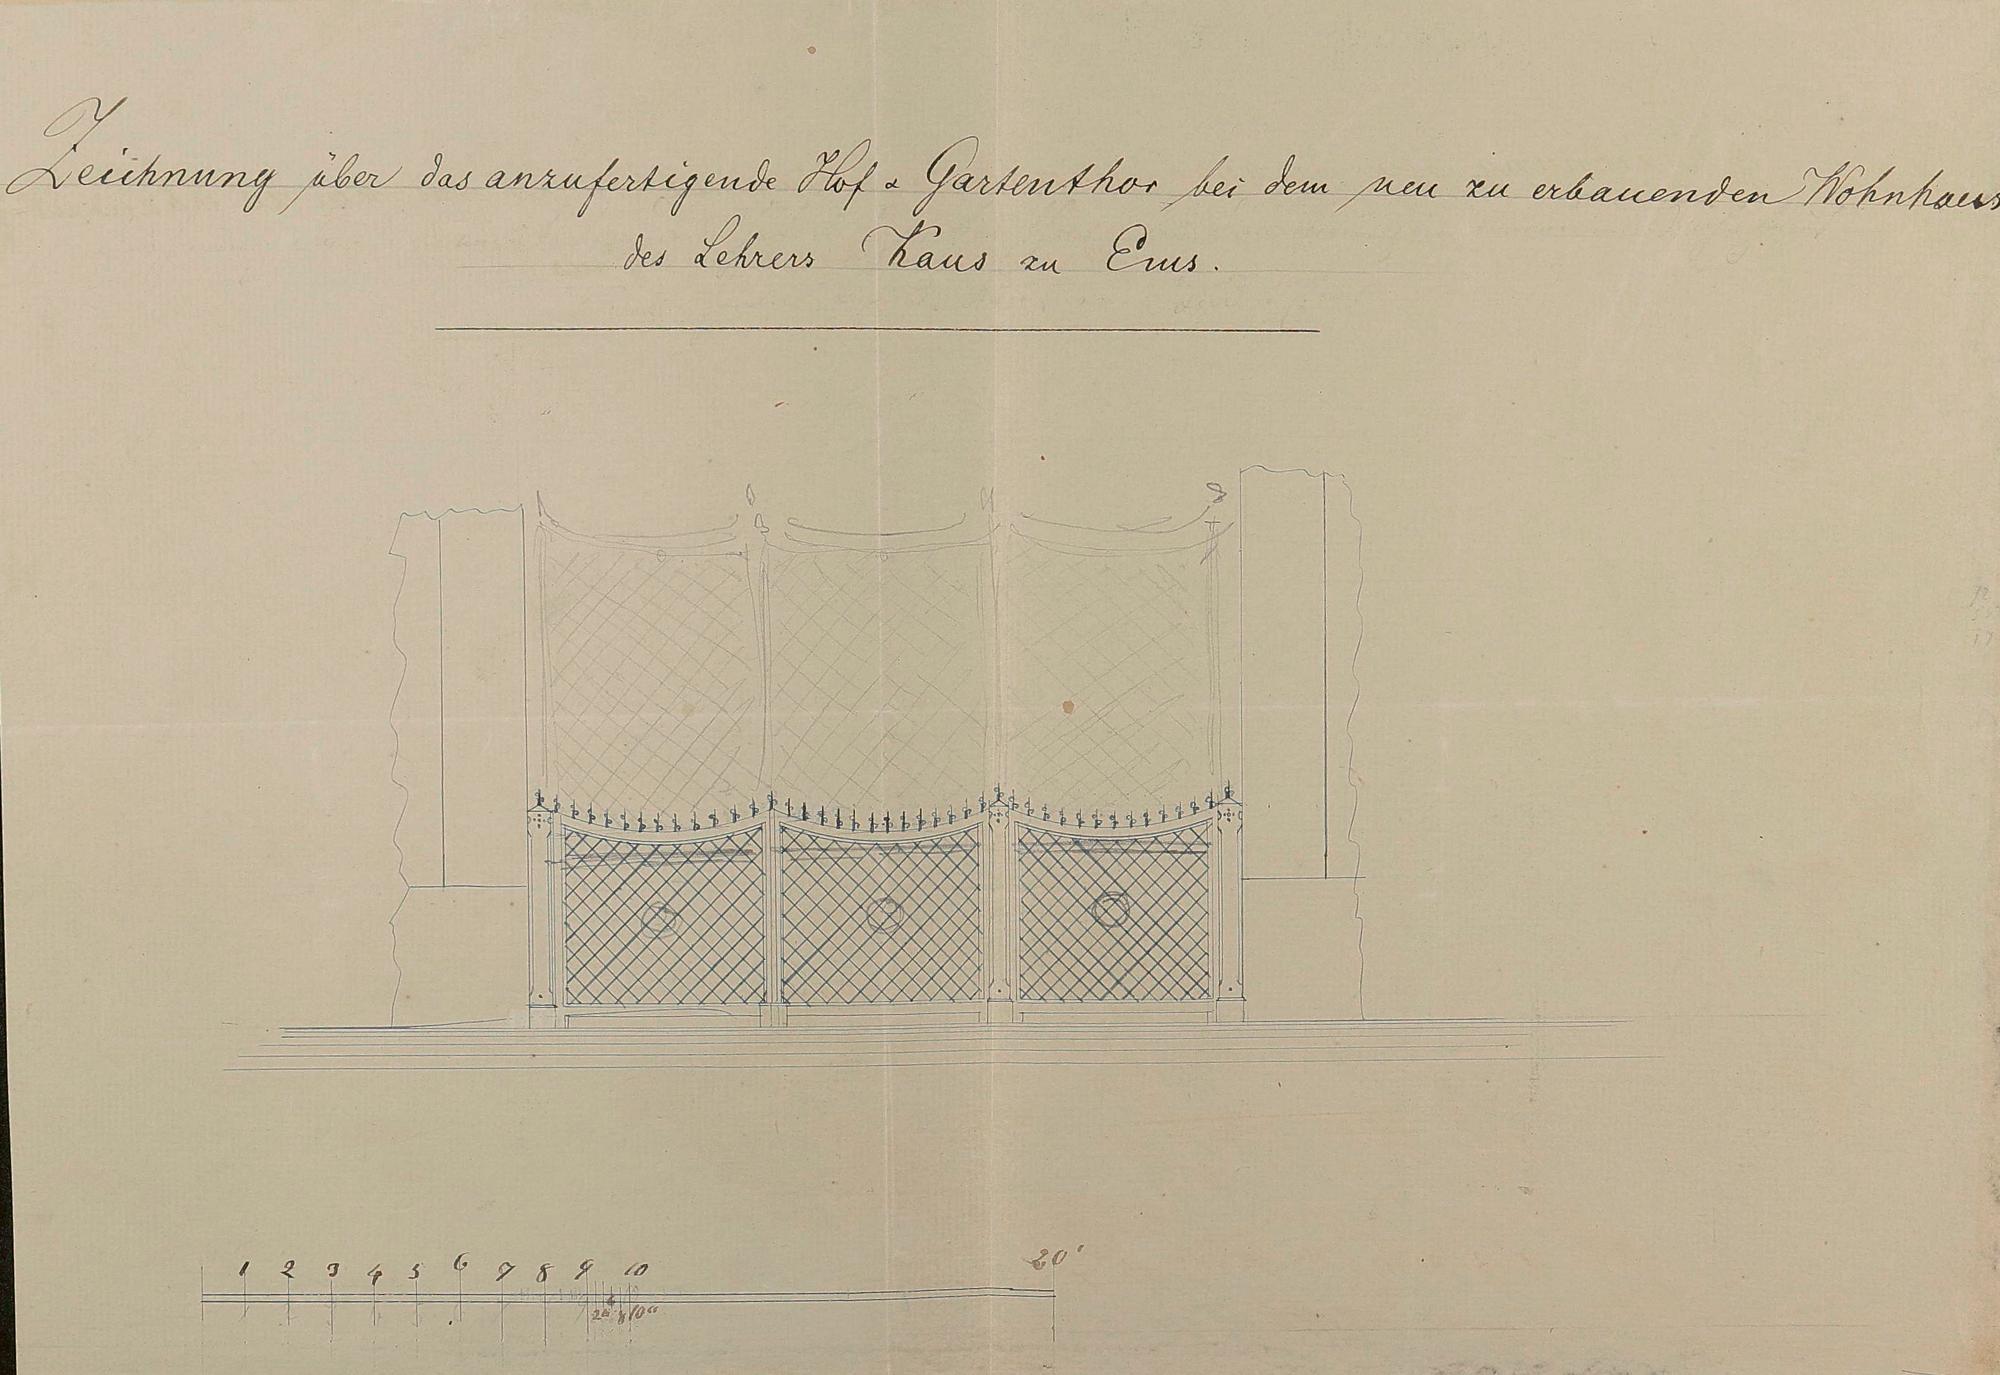 Zeichnung über das anzufertigende Hof & Gartenthor bei dem neu zu erbauenden Wohnhaus
des Lehrers Kaus zu Ems.
1 2 3 4 5 6 7 8 9 10 20'
2" 4 8 10"